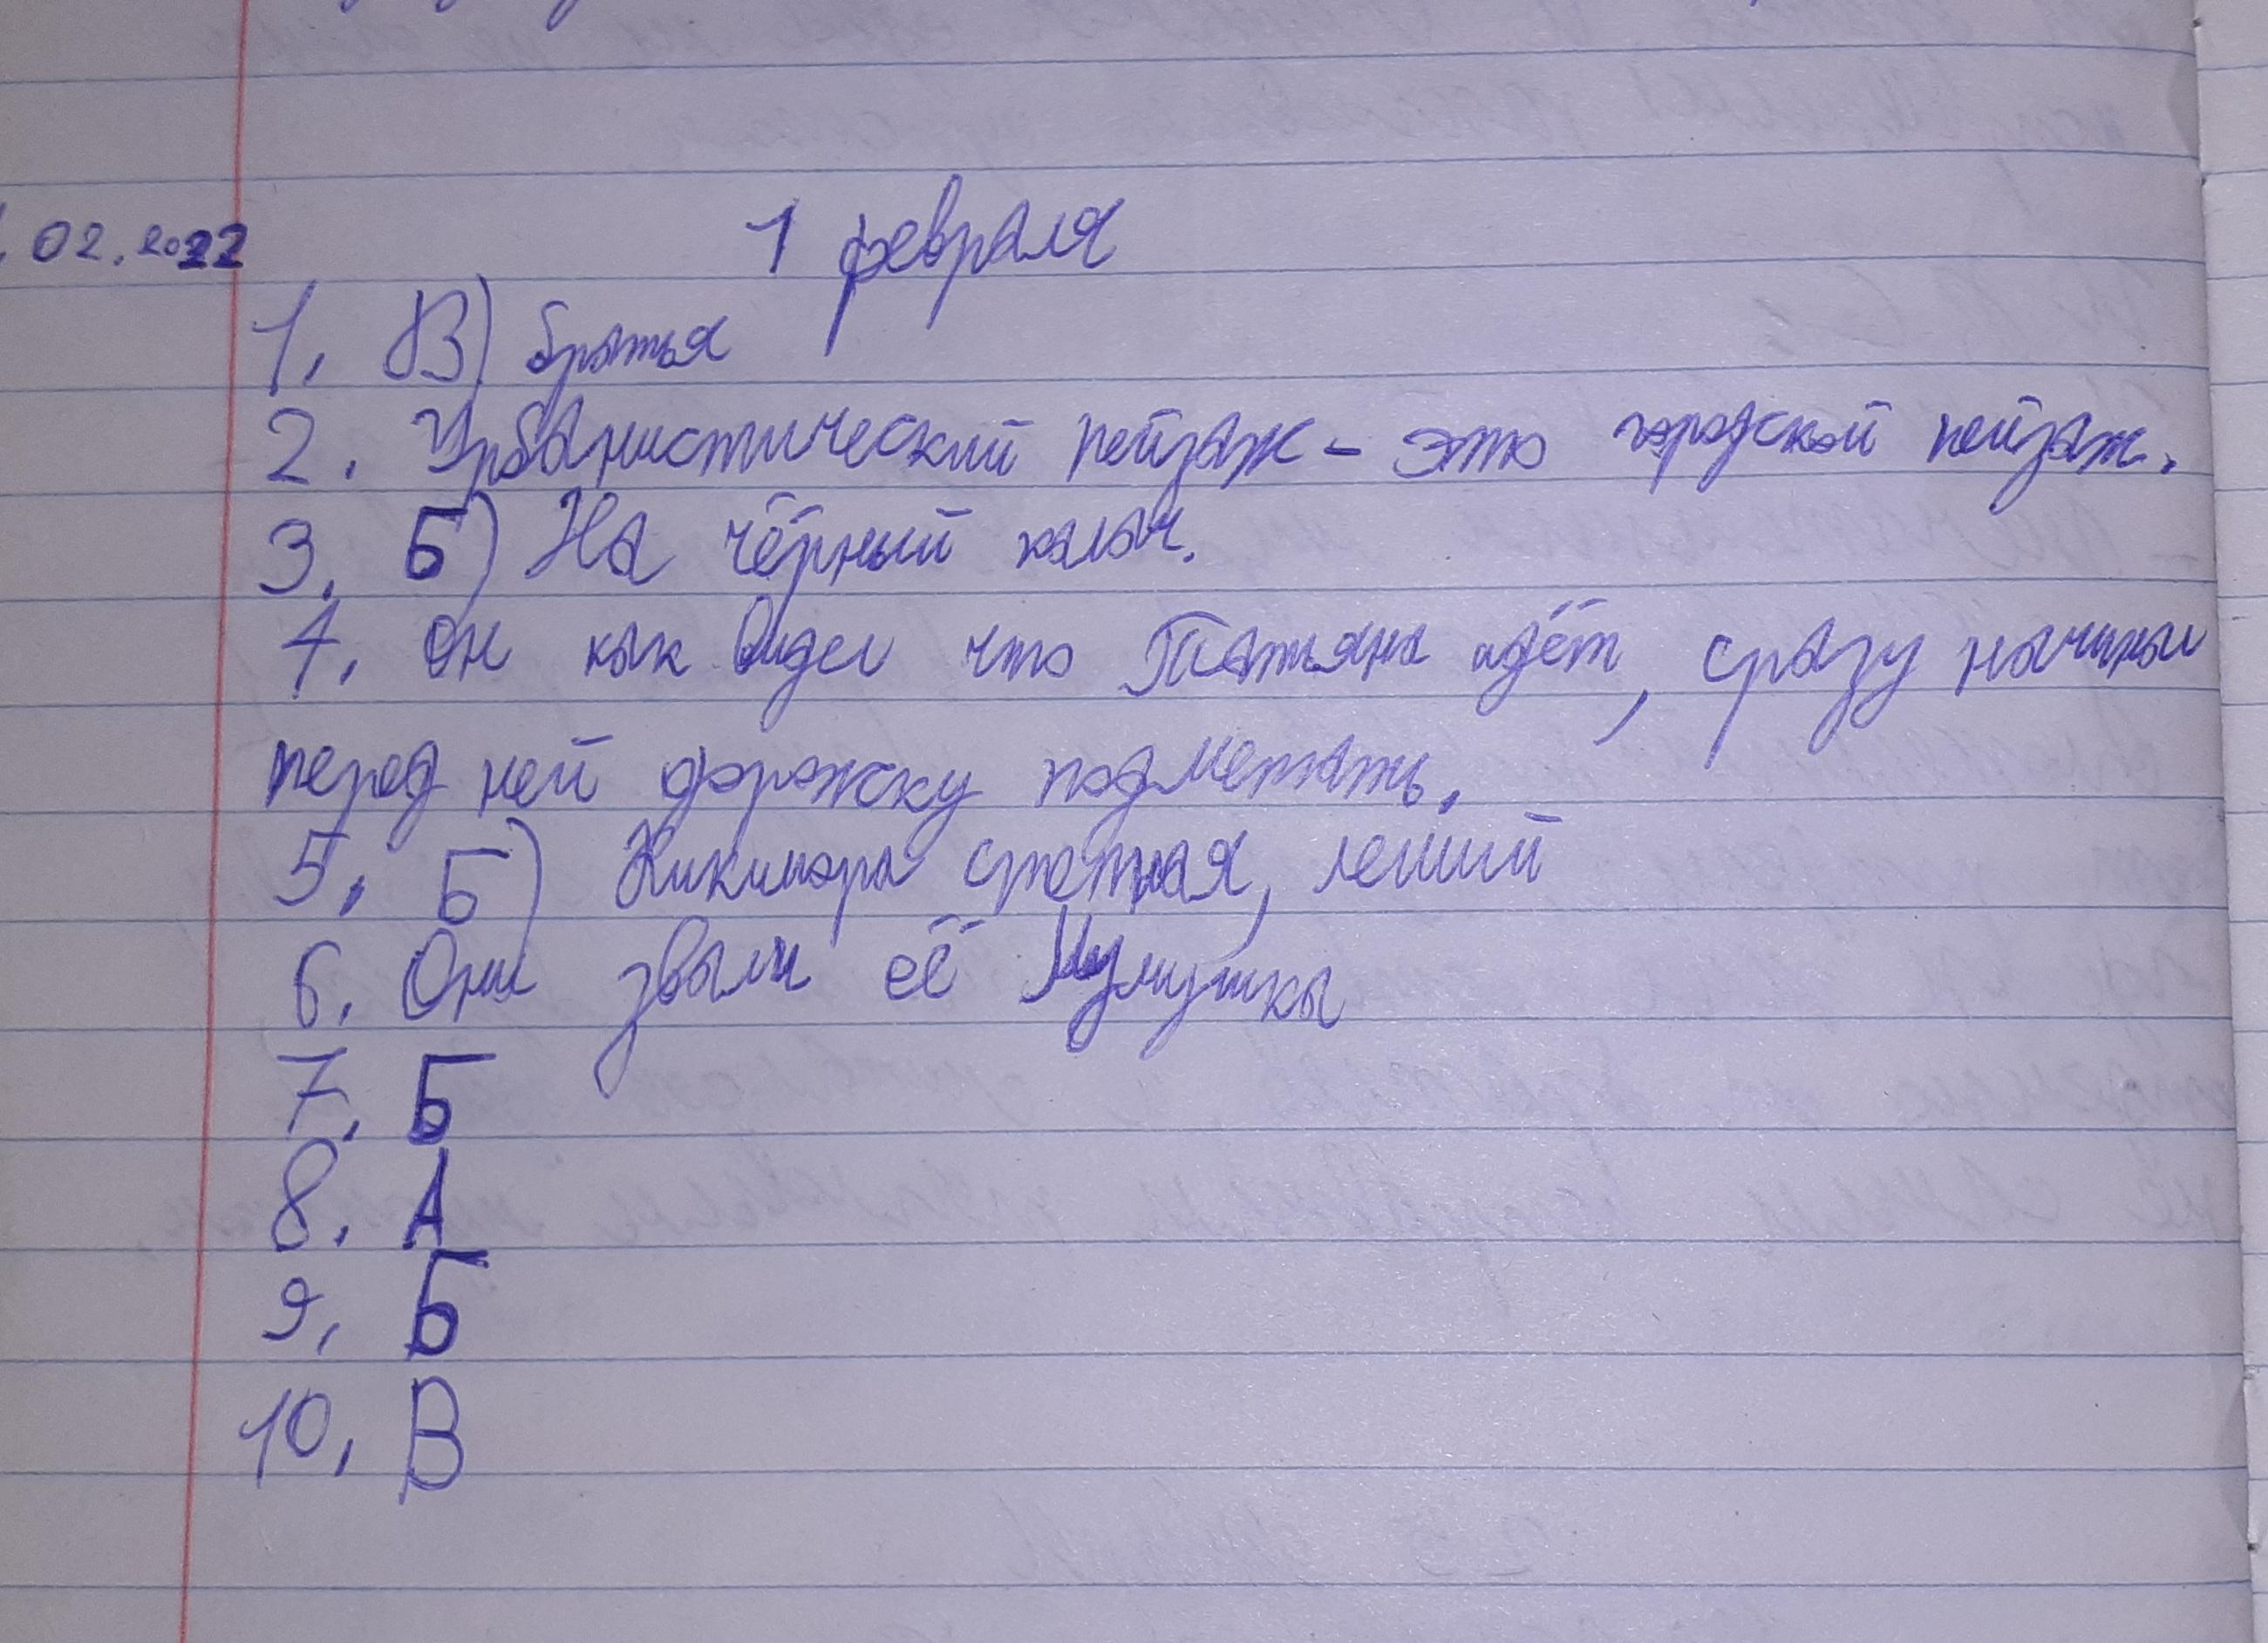 1 февраля
. 02. 2022
1. В) братья
2. Урбанистический пейзаж – это городской пейзаж.
3. Б) На чёрный палач.
4. Он как видел что Татьяна идёт, сразу начинал
перед ней дорожку подметать.
5. Б) Кикимора степная, леший
6. Они звали её Мумушка
7. Б
8. А
9. Б
10. В